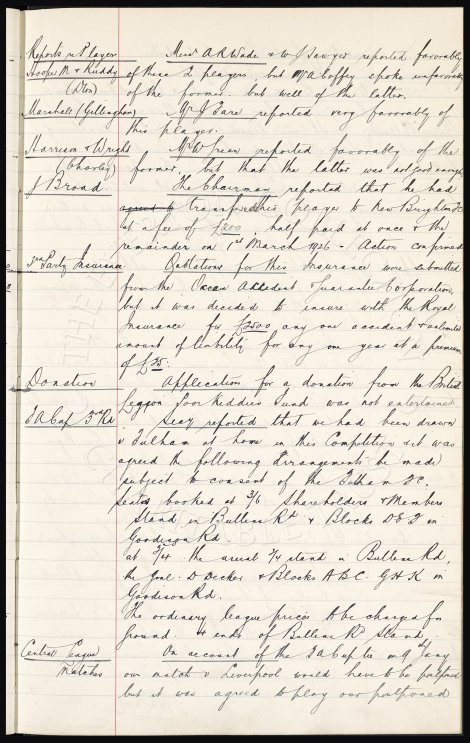 Reports u Player Messrs A R Wade & W J Sawyer reported favorably
Hoope M & Ruddy of these 2 players, but Mr A Coffey spoke unfavorably
(Dton) of the former, but well of the latter.
Marshall (Gillingham) Mr J Fare reported very favorably of
this player.
Harrison & Wright Mr W Green reported favorably of the
(Chorley) former, but that the latter was not good enough
J Broad. The Chairman reported that he had
agreed to transferred this player to New Brighton FC
at a fee of £200, half paid at once & the
remainder on 1st March 1926 - Action confirmed
3rd Party Insurance Quotations for this Insurance were submitted
from the Ocean Accident & Guarantee Corporation
but it was decided to insure with the Royal
Insurance for £2500 any one accident & unlimited
amount of liability for any one year at a premium
of £35.
Donation Application for a donation from the British
Legion Poor Kiddies Fund was not entertained
F A Cup 3rd Rd Secy reported that we had been drawn
v Fulham at home in this Competition & it was
agreed the following arrangements be made
subject to consent of the Fulham FC.
Seats booked at 3/6 Shareholders & Members
Stand in Bullens Rd & Blocks D E F in
Goodison Rd.
at 2/4 the usual 2/4 stand in Bullens Rd,
the Goal. D Decker & Blocks A B C. G H K in
Goodison Rd.
The ordinary league prices to be charged for
ground & ends of Bullens Rd Stand.
Central League On account of the F A Cup tie on 9th Jany
Matches our match v Liverpool would have to be postponed
but it was agreed to play our postponed